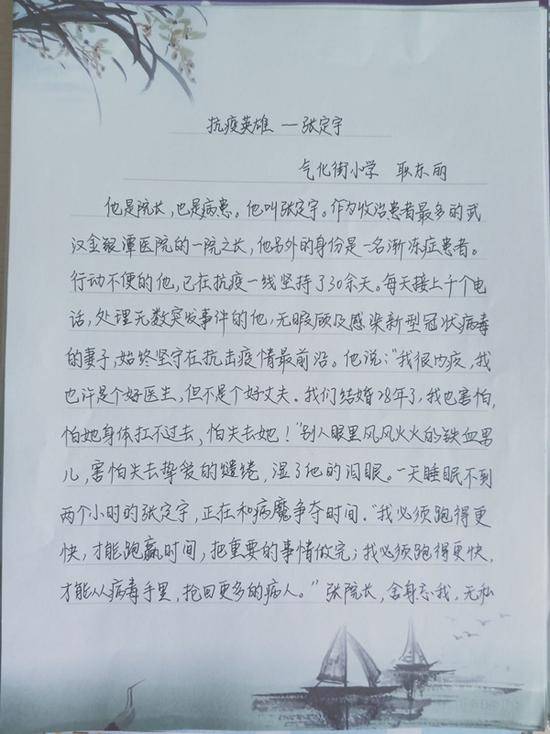 抗疫英雄 —张定宇
气化街小学 耿东丽
他是院长,也是病患。他叫张定宇。作为收治患者最多的武
汉金银潭医院的一院之长,他另外的身份是一名渐冻症患者。
行动不便的他,已在抗疫一线坚持了30余天。每天接上千个电
话,处理无数突发事件的他,无暇顾及感染新型冠状病毒
的妻子,始终坚守在抗击疫情最前沿。他说:“我很内疚,我
也许是个好医生,但不是个好丈夫。我们结婚28年了,我也害怕,
怕她身体扛不过去,怕失去她!”别人眼里风风火火的铁血男
儿,害怕失去挚爱的缱绻,湿了他的泪眼。一天睡眠不到
两个小时的张定宇,正在和病魔争夺时间。“我必须跑得更
快,才能跑赢时间,把重要的事情做完;我必须跑得更快,
才能从病毒手里,抢回更多的病人。”张院长,舍身忘我,无私